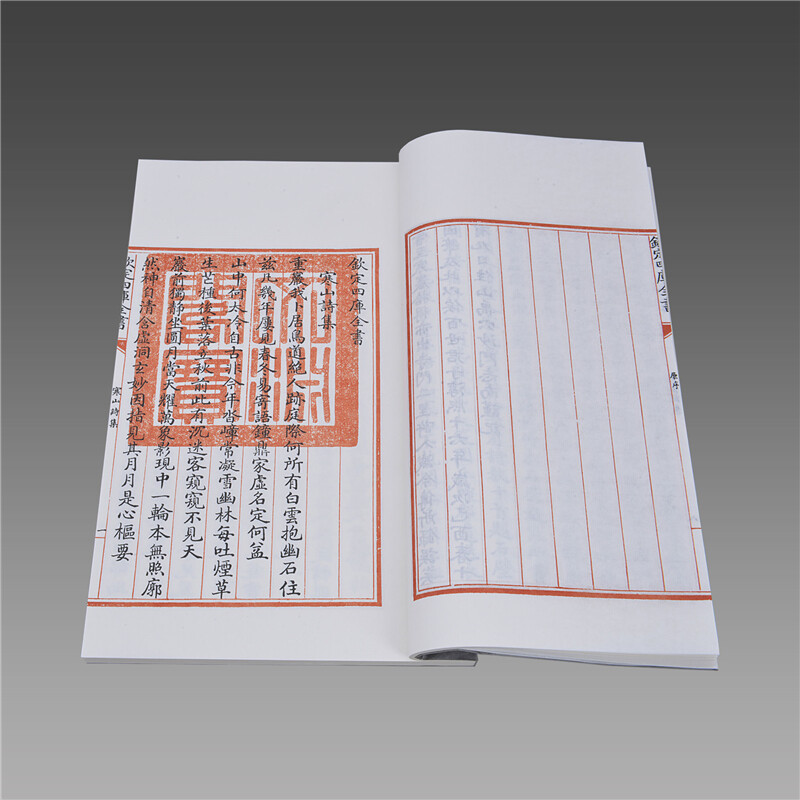 欽定四庫全書
原序
欽定四庫全書
寒山詩集
重巖我卜居鳥道絶人跡庭際何所有白雲抱幽石住
兹凡幾年屢見春冬易寄語鐘鼎家虚名定何益
山中何太冷自古非今年沓嶂常凝雪幽林每吐煙草
生芒種後葉落立秋前此有沉迷客窺窺不見天
巖前獨靜坐圓月當天耀萬象影現中一輪本無照廓
然神自清含虚洞玄妙因指見其月月是心樞要
欽定四庫全書
寒山詩集
一